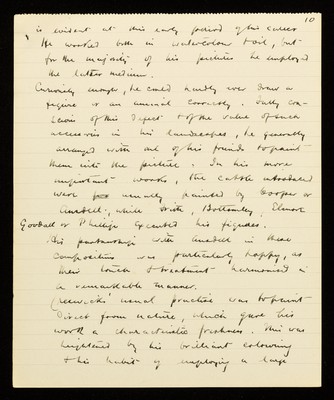 10
is evident at this early period of his career
He worked both in watercolour & oil, but
for the majority of his pictures he employed
the latter medium.
Curiously enough, he could hardly ever draw a
figure or an animal correctly. Fully con-
scious of this defect & of the value of such
accessories in his landscapes, he generally
arranged with one of his friends to paint
them into the picture. In his more
important works, the cattle introduced
were usually painted by Cooper or
Ansdell, while Frith, Bottomley, Elmore
Goodall or Phillip executed his figures.
His partnership with Ansdell in these
compositions was particularly happy, as
their touch & treatment harmonised in
a remarkable manner.
Creswick's usual practice was to paint
direct from nature, which gave his
work a characteristic freshness. This was
heightened by his brilliant colouring
& his habit of employing a large